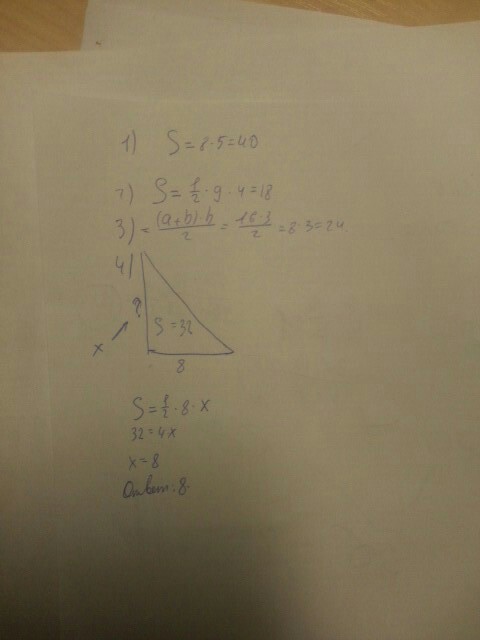 1) S = 8·5=40
2) S = 1/2 · 9 · 4 = 18
3) = (a+b)·h/2 = 16·3/2 = 8·3=24.
4)
?
S = 32
x
8
S = 1/2 · 8 · x
32 = 4x
x = 8
Ответ: 8.